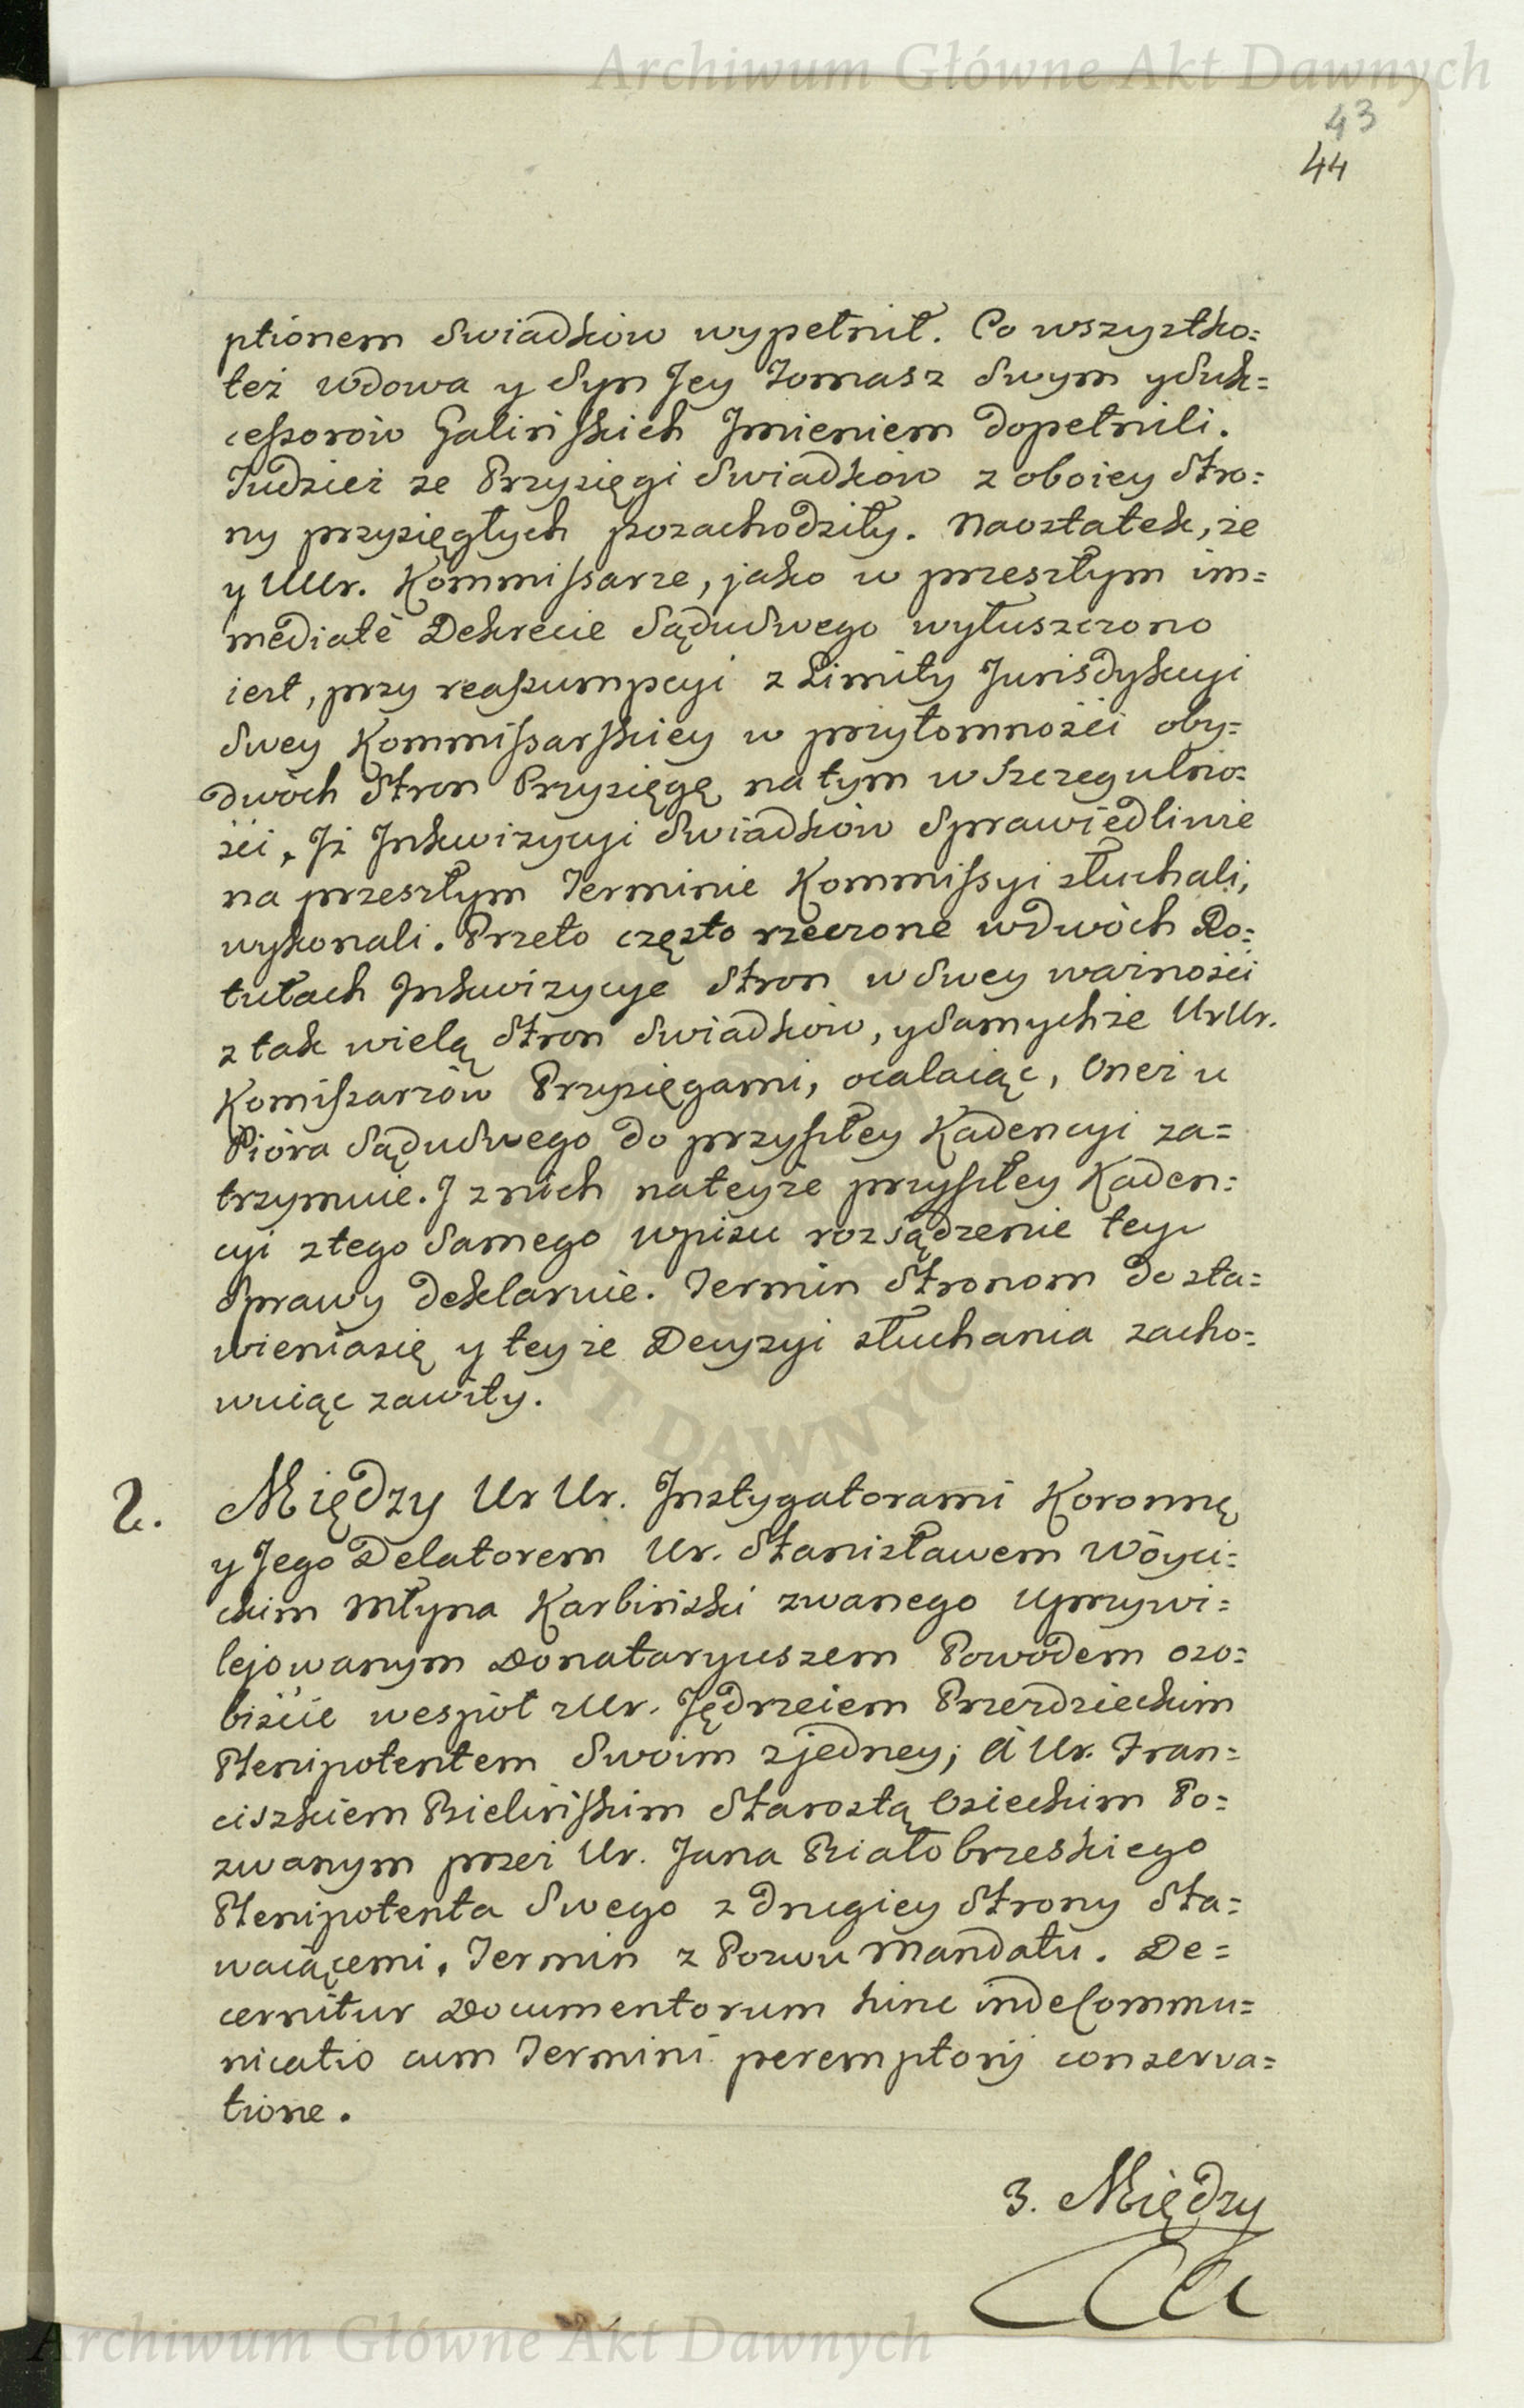 Archiwum Główne Akt Dawnych
43
44
ptionem Swiadków wypełnił. Co wszystko=
też wdowa y Syn Jey Tomasz Swym y Suk=
cessorów Galińskich Imieniem dopełnili.
Tudzież ze Przysięgi Swiadków z oboiey Stro=
ny przysięgłych pozachodziły. Naostatek, że
y UUr. Kommissarze, jako w przeszłym im=
mediatè Dekrecie Sądu Swego wyłuszczono
iest, przy reassumpcyi z Limity Jurisdykcyi
Swey Kommissarskiey w przytomności oby=
dwóch Stron Przysięgę na tym w Szczegulno=
ści, Iż Inkwizycyi Swiadków Sprawiedliwie
na przeszłym Terminie Kommissyi słuchali,
wykonali. Przeto często rzeczone w dwóch Ro=
tułach Inkwizycye Stron w Swey ważności
z tak wielą Stron Swiadków, y Samychże UrUr.
Komissarzów Przysięgami, ocalaiąc, Oneż u
Pióra Sądu Swego do przyszłey Kadencyi za=
trzymuie. I z nich na teyże przyszłey Kaden=
cyi z tego Samego wpisu rozsądzenie tey
Sprawy deklaruie. Termin Stronom do sta=
wienia się y teyże Decyzyi słuchania zacho=
wuiąc zawity.
2. Między Ur Ur. Instygatorami Koronnę
y Jego Delatorem Ur. Stanisławem Wóyci=
ckim Młyna Karbiński zwanego Uprzywi=
lejowanym Donataryuszem Powodem oso=
biście wespół z Ur. Jędrzeiem Przerdzieckim
Plenipotentem Swoim z jedney; à Ur. Fran=
ciszkiem Bielińskim Starostą Osieckim Po=
zwanym przez Ur. Jana Białobrzeskiego
Plenipotenta Swego z drugiey Strony Sta=
waiącemi. Termin z Pozwu Mandatu. De=
cernitur Documentorum hinc inde Commu=
nicatio cum Termini peremptorij conserva=
tione.
3. Między
Archiwum Główne Akt Dawnych